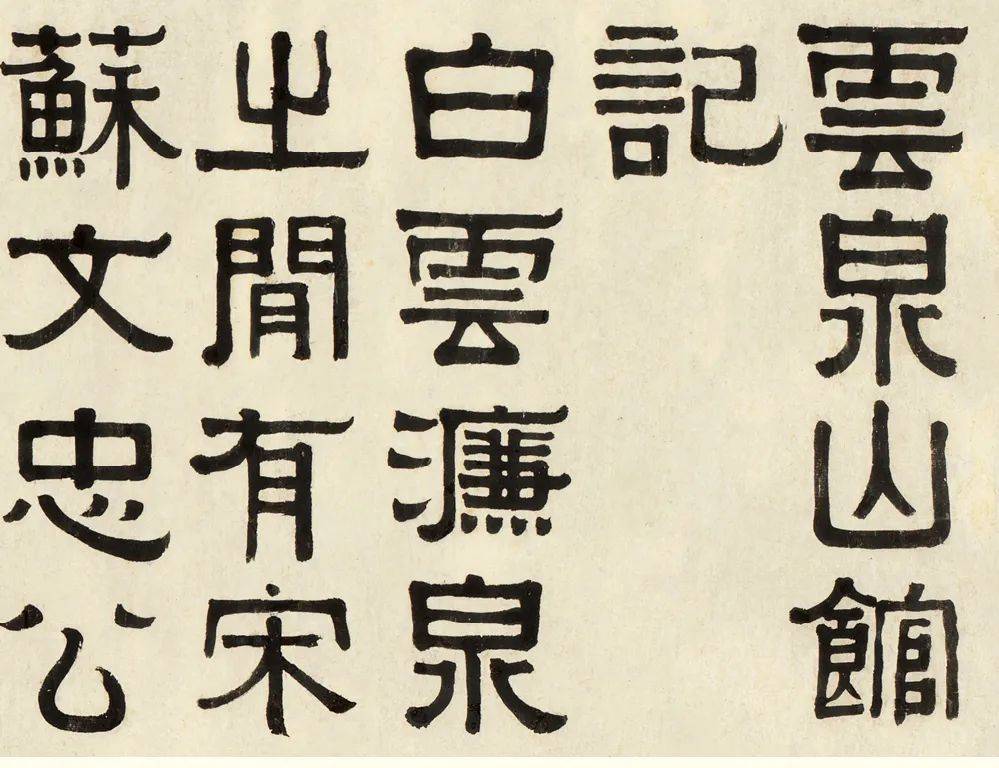 雲泉山館
記
白雲濂泉
之間有宋
蘇文忠公